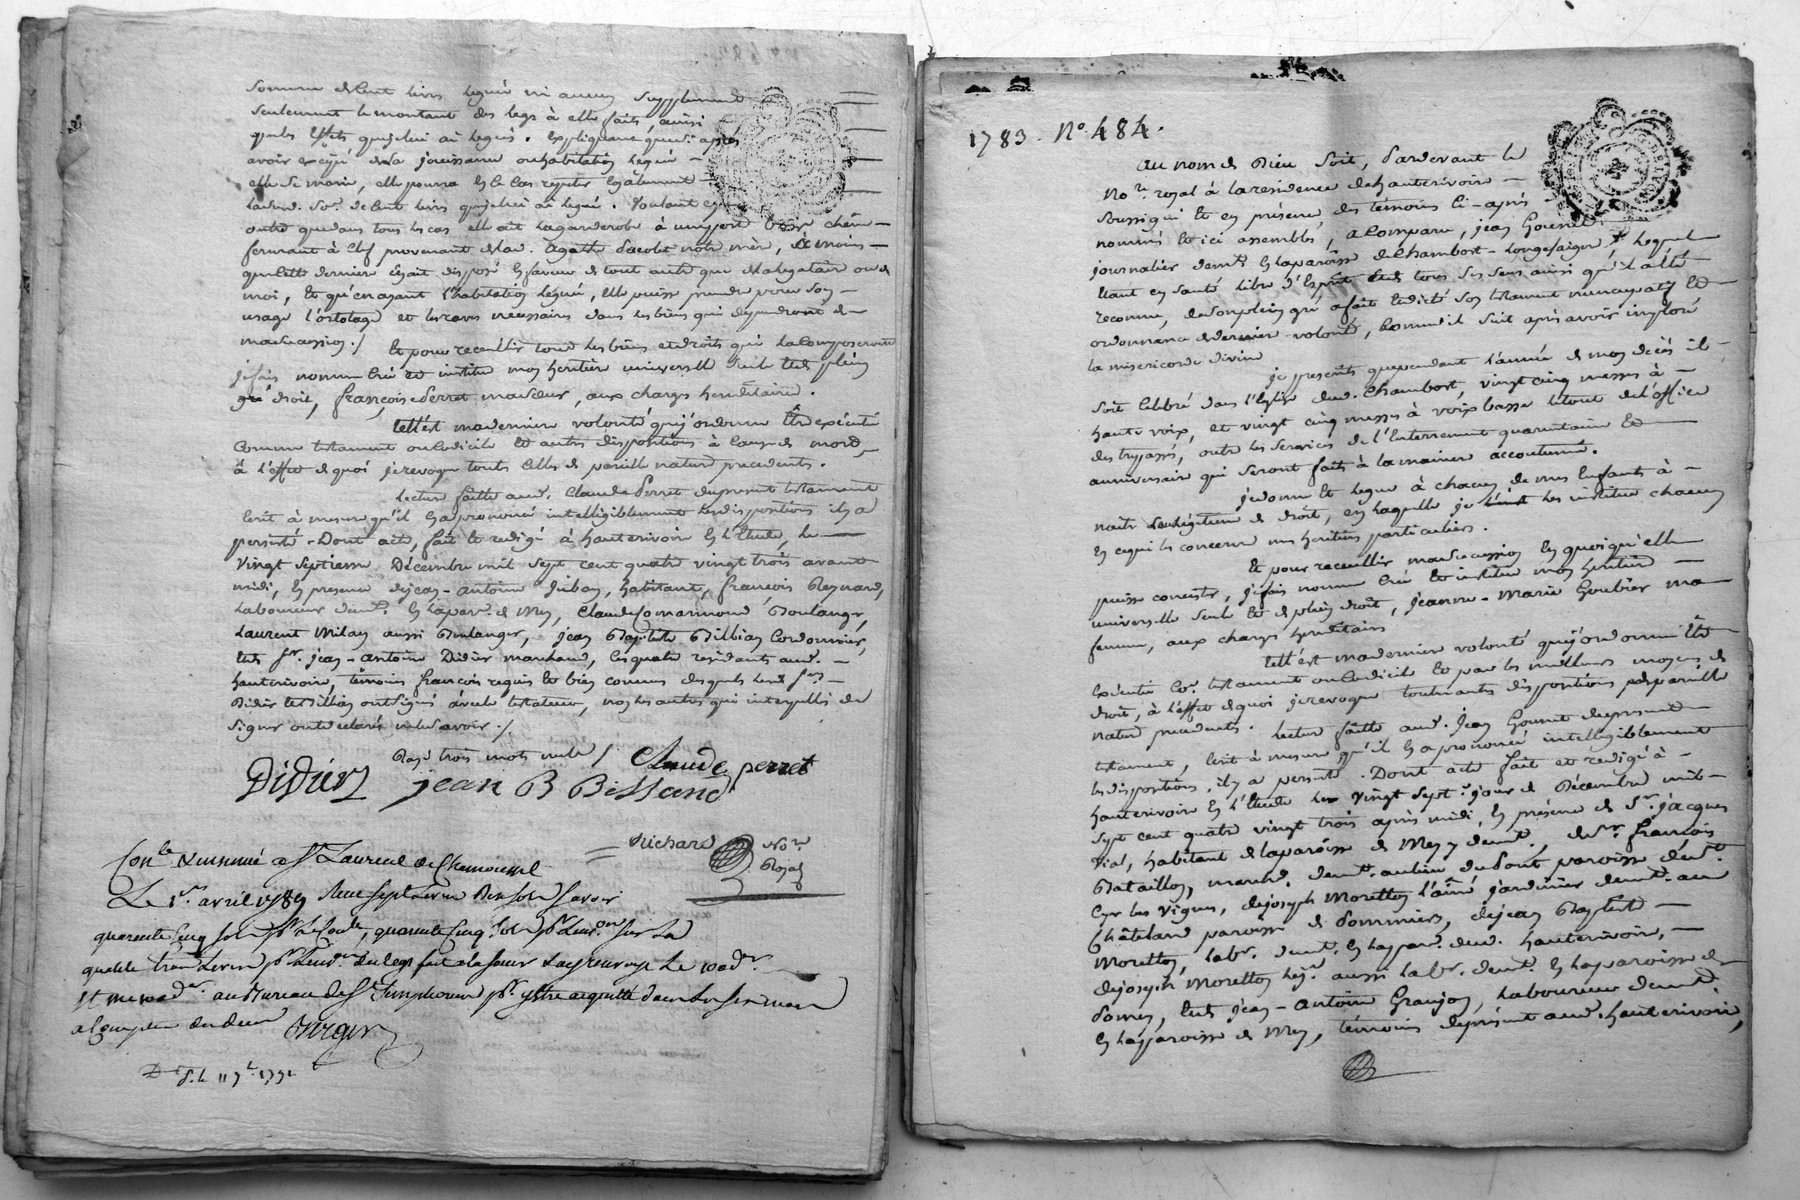 somme de cent livres legué ni aucun supplement
seulement le montant des legs à elle faits, ainsi
que les effets que je lui ai legués. Expliquant que si après
avoir exigé de la jouissance ou habitation leguée
elle se marie, elle pourra en ce cas repeter egalement
lad. so. de cent livres que je lui ai legué. Voulant en
outre que dans tous les cas elle ait la garderobe à une porte bois chêne
fermant à clef provenant de lad. agathe notre mère, à moins
que cette dernière n'ait disposé en faveur de tout autre que de la legataire ou de
moi, et qu'en ayant l'habitation leguée, elle puisse prendre pour son
usage l'ortolage et les raves necessaires dans les biens qui dependront de
ma succession ./.
Et pour recueillir tous les biens et droits qui la composeront
je fais nomme créé et institue mon heritier universelle seule et de plein
droit, françoise Perret ma soeur, aux charges hereditaires.
tell'est ma derniere volonté que j'ordonne être exécuté
comme testament ou codicile et autres dispositions à cause de mort,
à l'effet de quoi je revoque toutes celles de pareille nature precedents.
Lecture faitte aud. Claude Perret du present testament
ecrit à mesure qu'il en a prononcé intelligiblement les dispositions il y a
persisté. Dont acte, fait et redigé à hauterivoire en l'Etude, le
vingt septieme Décembre mil sept cent quatre vingt trois avant
midi, en presence de jean-antoine habitant, françois Reynard,
laboureur demt. en la parr. de Mey, Claude Comarmond Boulanger,
Laurent Milan aussi Boulanger, jean Baptiste Billian Cordonnier,
et de sr. jean-antoine Didier marchand, les quatre residants aud.
hauterivoire, témoins françois requis et bien connus desquels led. sr.
Didier et Billian ont signé avec le testateur, non les autres qui interpellés de
signer ont declaré ne le savoir ./.
Rayé trois mots nuls /. Claude perret
Didier jean B Billand
Richard No.re Royal
Con.lé & insinué a St Laurent de Chamousset
Le 1er avril 1789 Reçu sept livres dix sols savoir
quarante cinq sols pr. le Conle, quarante cinq sols pr. l'insi.on sur la
a Compter de ce jour
D. S. le 11 9b. 1791
1783. No. 484.
Au nom de Dieu soit, Pardevant le
No.re royal à la residence de hauterivoire
soussigné et en présence des témoins ci-après
nommés et ici assemblés, a Comparu, jean Gounet
journalier demt. en la paroisse de Chambost-Longesaigne, lequel
etant en santé libre d'Esprit et de tous ses sens ainsi qu'il a été
reconnu, de son plein gré a fait et dicté son testament nuncupatif et
ordonnance de derniere volonté, comme il suit après avoir imploré
la misericorde divine
je prescrits que pendant l'année de mon decès il
soit celebré dans l'Eglise dud. Chambost, vingt cinq messes à
haute voix, et vingt cinq messes à voix basse le tout de l'office
des trepassés, outre les services de l'Enterrement quarantaine et
anniversaire qui seront faits à la maniere accoutumée.
je donne et legue à chacun de mes Enfants à
naitre la légitime de droit, en laquelle je les institue chacun
en ce qui les concerne mes heritiers particuliers.
Et pour recueillir ma succession en quoi qu'elle
puisse consister, je fais nomme créé et institue mon heritière
universelle seule et de plein droit, jeanne-Marie Goubier ma
femme, aux charges hereditaires
tell'est ma derniere volonté que j'ordonne être
Exécutée co. testament ou Codicile et par les meilleurs moyens de
droit, à l'effet de quoi je revoque toutes autres dispositions de pareille
nature precedents. Lecture faitte aud. jean Gounet du present
testament, ecrit à mesure qu'il en a prononcé intelligiblement
les dispositions, il y a persisté. Dont acte fait et redigé à
hauterivoire en l'Etude le vingt sept. jour de Décembre mil
sept cent quatre vingt trois après midi, en présence de Sr. jacques
Vial, habitant de la paroisse de Mey y demt., de Sr. françois
Bataillon, marchd. demt. au lieu du Pont paroisse de St.
Cyr les vignes, de joseph Moretton l'ainé jardinier demt. au
Châtelard paroisse de Pommiers, de jean Baptiste
Moretton, labr. demt. en la parr. dud. hauterivoire,
de joseph Moretton aussi labr. demt. en la paroisse de
, et de jean-antoine Granjon, laboureur demt.
en la paroisse de Mey, témoins de présent aud. hauterivoire,